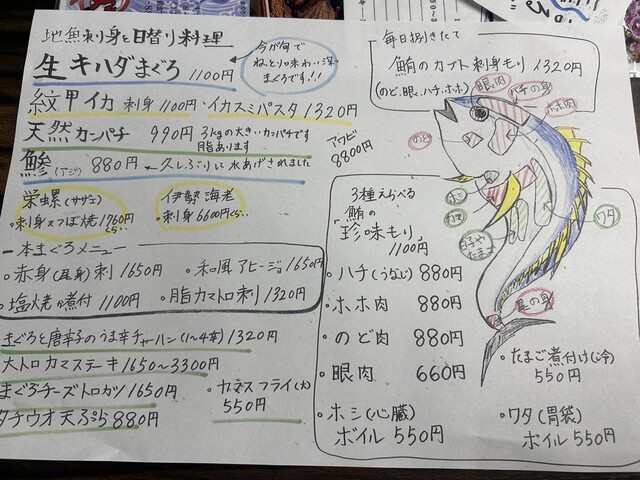 地魚刺身と日替り料理
生キハダまぐろ 1100円
今が旬で
ねっとり味わい深い
まぐろです!!
紋甲イカ 刺身1100円・イカスミパスタ1320円
天然カンパチ 990円 3kgの大きいカンパチです
脂あります
鯵(アジ) 880円 ←久しぶりに水あげされました
アワビ
8800円
栄螺(サザエ)
・刺身又つぼ焼1760円くらい
伊勢海老
・刺身6600円くらい
本まぐろメニュー
・赤身(瓦身)刺1650円
・和風アヒージョ1650円
・塩焼と煮付1100円
・脂カマトロ刺1320円
まぐろと唐辛子のうま辛チャーハン(1~4辛)1320円
大トロカマステーキ1650~3300円
まぐろチーズトロカツ1650円
・カマスフライ(大)
550円
タチウオ天ぷら880円
毎日捌きたて
鮪のカブト刺身もり1320円
(のど、眼、ハチ、ホホ)
眼肉
ハチの身
ホホ肉
のど
ホシ
ワタ
尾の身
3種えらべる
「鮪の
珍味もり」
1100円
・ハチ(うなじ)880円
・ホホ肉 880円
・のど肉 880円
・眼肉 660円
・ホシ(心臓)
ボイル550円
・たまご煮付け(冷)
550円
・ワタ(胃袋)
ボイル550円